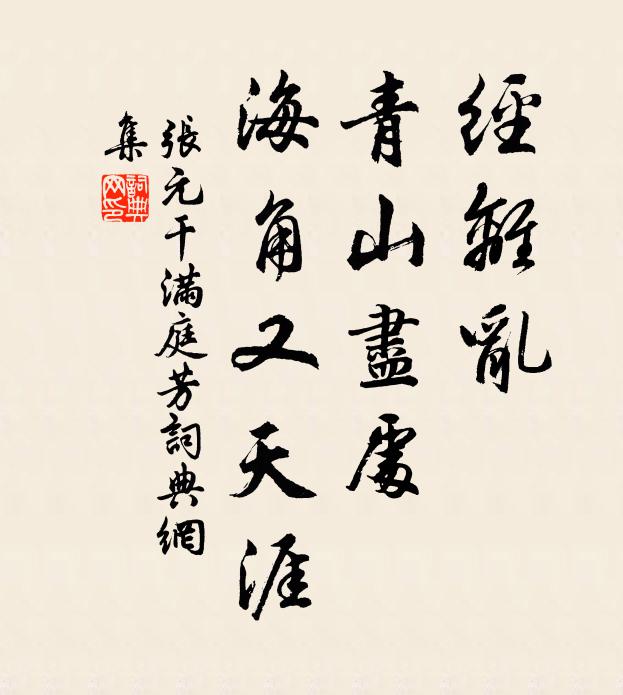 經離亂
青山盡處
海角又天涯
張元干滿庭芳詞典網
集
詞典網印